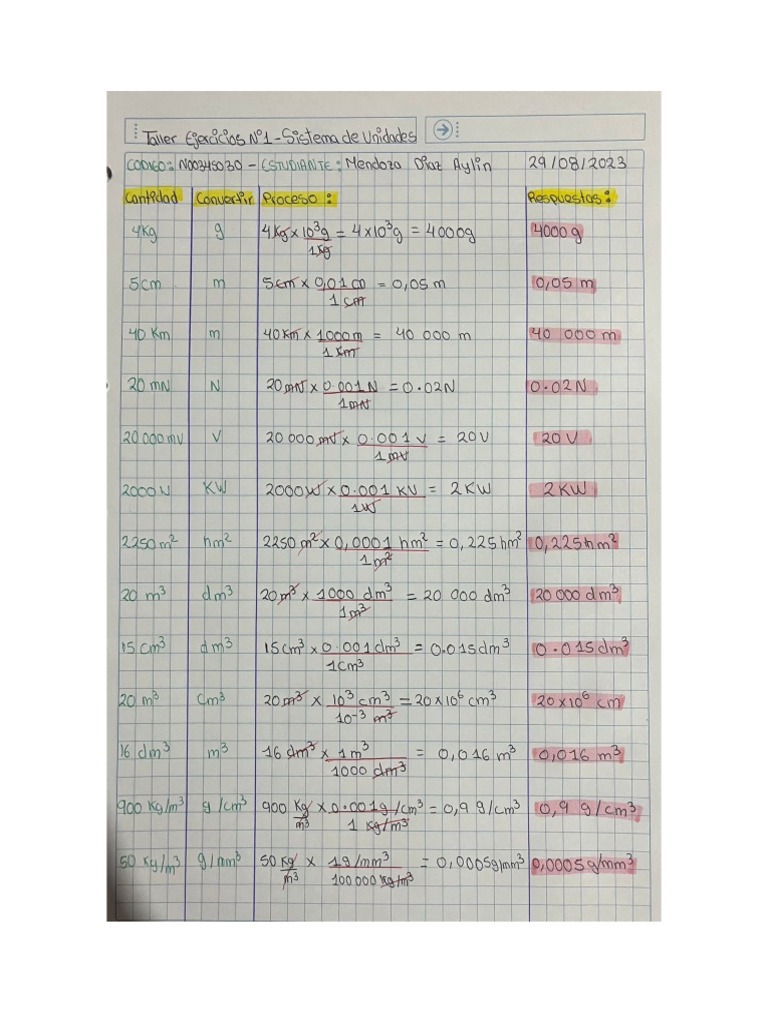 Taller Ejercicios N°1 - Sistema de Unidades
CODIGO: N00345030 - ESTUDIANTE: Mendoza Diaz Aylin 29/08/2023
Cantidad Convertir Proceso: Respuestas:
4Kg g 4Kg x 10³g / 1Kg = 4x10³g = 4000g 4000g
5cm m 5cm x 0,01 / 1cm = 0,05 m 0,05 m
40 Km m 40Km x 1000m / 1Km = 40 000 m 40 000 m
20 mN N 20mN x 0.001N / 1mN = 0.02N 0.02N
20 000 mV V 20 000 mV x 0.001 V / 1mV = 20V 20 V
2000W KW 2000W x 0.001 KV / 1W = 2KW 2KW
2250m² hm² 2250 m² x 0,0001 hm² / 1m² = 0,225hm² 0,225hm²
20 m³ dm³ 20m³ x 1000 dm³ / 1m³ = 20 000 dm³ 20 000 dm³
15cm³ dm³ 15cm³ x 0.001dm³ / 1cm³ = 0.015dm³ 0.015dm³
20 m³ Cm³ 20m³ x 10³ cm³ / 10⁻³ m³ = 20x10⁶ cm³ 20x10⁶ cm
16 dm³ m³ 16 dm³ x 1m³ / 1000 dm³ = 0,016 m³ 0,016 m³
900 Kg/m³ g/cm³ 900 Kg/m³ x 0.001g/cm³ / 1 Kg/m³ = 0,9 g/cm³ 0,9 g/cm³
50 Kg/m³ g/mm³ 50 Kg/m³ x 1g/mm³ / 100 000 Kg/m³ = 0,0005g/mm³ 0,0005g/mm³